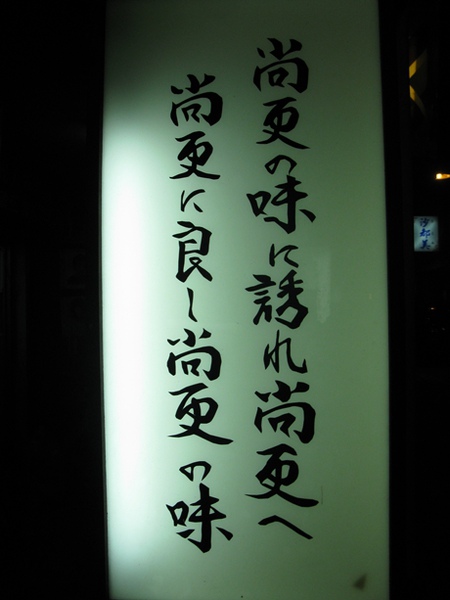 尚更の味に誘れ尚更へ
尚更に良し尚更の味